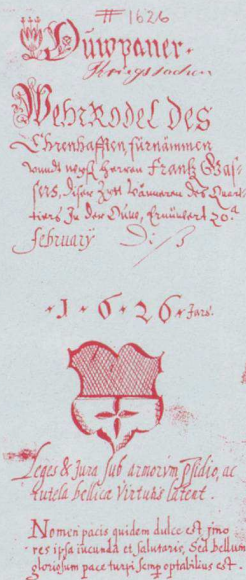 # 1626
Ouwpaner.
Kriegssachen
WehrRodel des
Ehrenhafften, fürnämmen
unndt wyss Herren Frantz Gas-
sers, diser Zytt Vänneren des Quar-
tiers In der Ouwe, Ernüwert 20.a
february Diss
1 6 26 Jars.
Leges & Jura sub armorum psidio, ac
tutela bellica Virtutis latent.
Nomen pacis quidem dulce est imo
res ipsa iucunda et salutaris, Sed bellum
gloriosum pace turpi semp optabilius est.